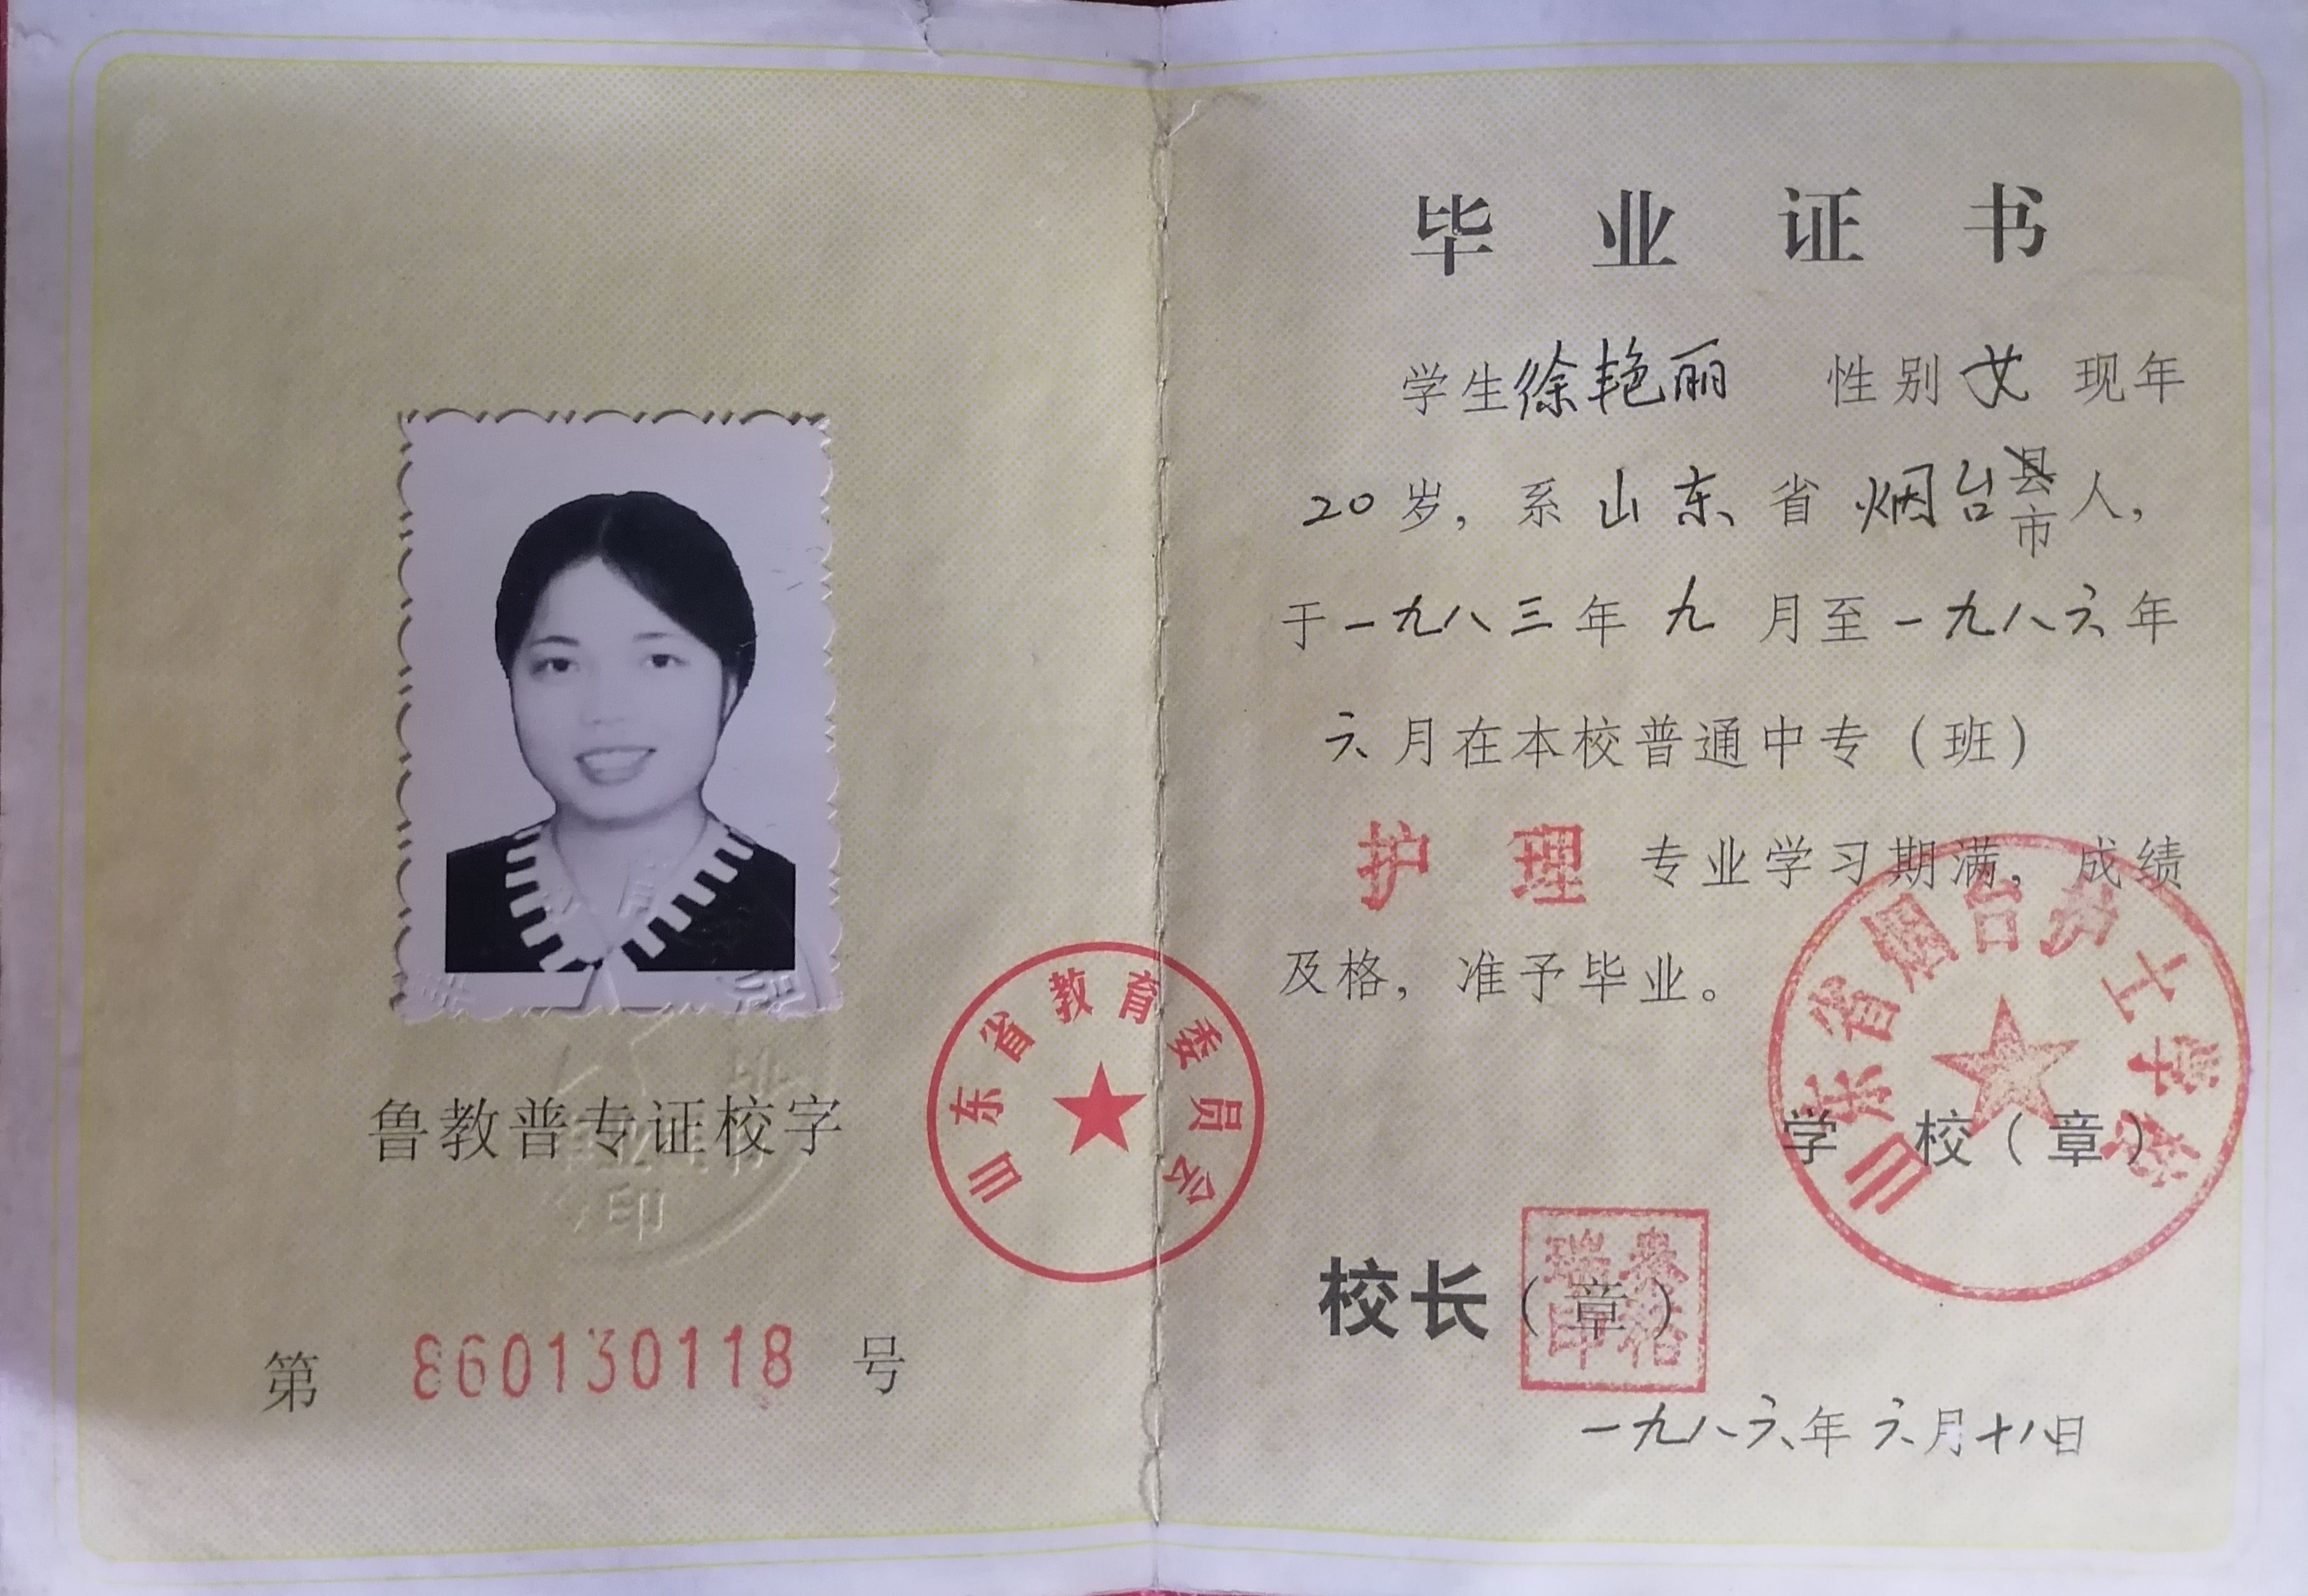 鲁教普专证校字
第 860130118 号
山东省教育委员会
毕业证书
学生徐艳丽 性别 女 现年
20岁，系山东省烟台县市人，
于一九八三年九月至一九八六年
六月在本校普通中专（班）
护理 专业学习期满，成绩
及格，准予毕业。
山东省烟台护士学校
学 校（章）
校长（章）
一九八六年六月十八日